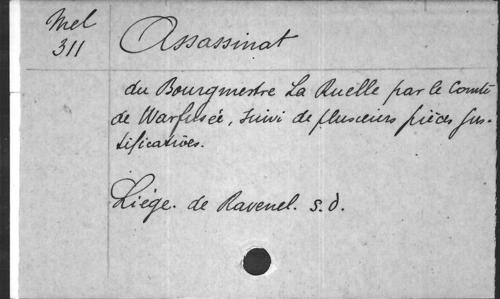 Mel
311
Assassinat
du Bourgmestre La Ruelle par le Comte
de Warfusée, suivi de plusieurs pièces jus-
tificatives.
Liége. de Ravenel. s.d.